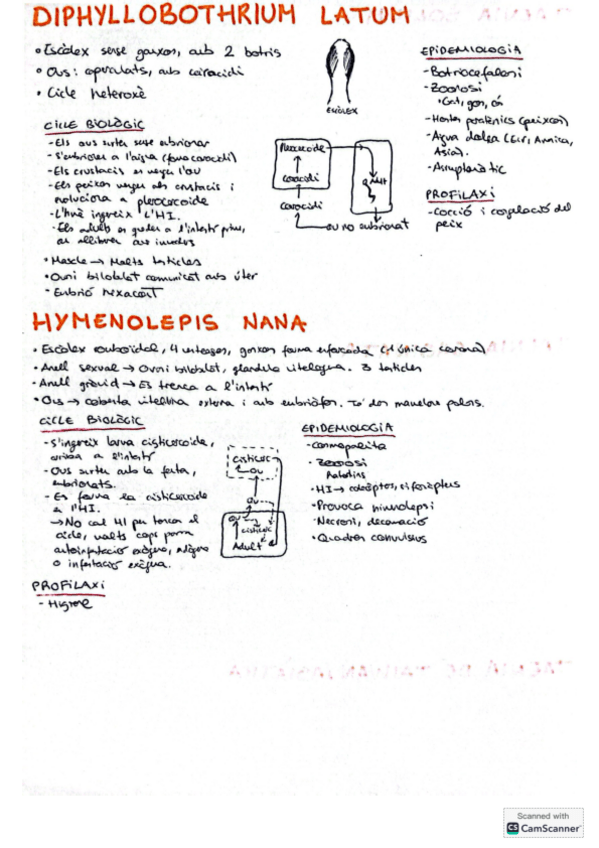 DIPHYLLOBOTHRIUM LATUM
• Escòlex sense ganxos, amb 2 botris
• Ous: operculats, amb coracidi
• Cicle heteroxè
ESCÒLEX
CICLE BIOLÒGIC
- Els ous surten sense embrionar
- S'embrionen a l'aigua (forma coracidi)
- Els crustacis es mengen l'ou
- Els peixos mengen als crustacis i
evoluciona a plerocercoide
- L'humà ingereix l'HI.
- Els adults es queden a l'intestí prim,
on alliberen ous immadurs
• Mascle → Molts testicles
• Ovari bilobulat comunicat amb úter
- Embrió hexacant
Plerocercoide
coracidi
coracidi
Adult
ou no embrionat
EPIDEMIOLOGIA
- Botriocefalosi
- Zoonosi
• Gat, gos, ós
- Hostes paratènics (peixos)
- Aigua dolça (Eur, Amèrica,
Àsia).
- Asimptomàtic
PROFILAXI
- Cocció i congelació del
peix
HYMENOLEPIS NANA
• Escòlex romboidal, 4 ventoses, ganxos forma enforcada (1 única corona)
• Anell sexual → Ovari bilobulat, glàndula vitel·lògena. 3 testicles
• Anell gràvid → Es trenca a l'intestí
• Ous → coberta vitel·lina externa i amb embriòfor. Té dos mamelons polars.
CICLE BIOLÒGIC
- S'ingereix larva cisticercoide,
arriba a l'intestí
- Ous surten amb la femta,
embrionats.
- Es forma la cisticercoide
a l'HI.
→ No cal HI per tancar el
cicle, molts cops per
autoinfestació endògena, exògena
o infestació exògena.
cisticerc
ou
ou
ou
cisticerc
Adult
EPIDEMIOLOGIA
- Cosmopolita
• Zoonosi
Ratolins
• HI → coleòpters, sifonàpters
• Provoca himenolepiosi
- Necrosi, descamació
• Quadres convulsius
PROFILAXI
- Higiene
Scanned with
CS CamScanner